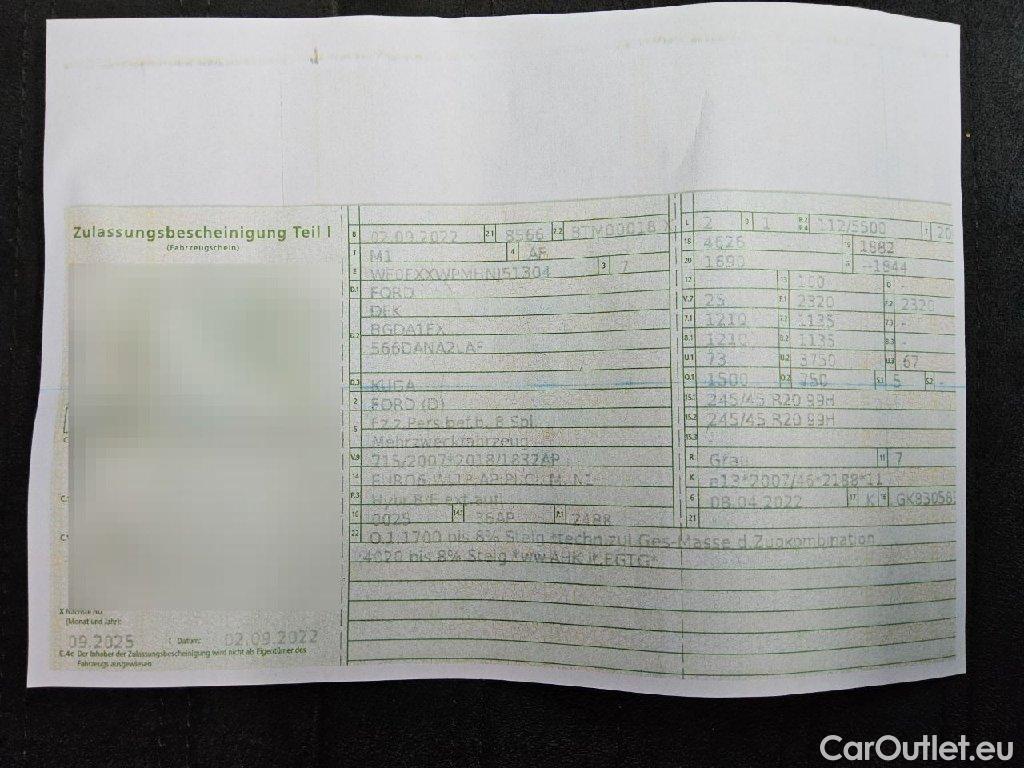 Zulassungsbescheinigung Teil I
(Fahrzeugschein)
B 02.09.2022 2.1 8566 2.2
J M1 4 AF
E 3 7
D.1 FORD
DFK
D.2
D.3 KUGA
2 FORD (D)
5 Fz.z.Pers.bef.b. 8 Spl.
Mehrzweckfahrzeug
V.9 715/2007*2018/1832AP
14
P.3 Hybr.B/E ext.aufl.
10 0025 14.1 36AP P.1 2488
22 O.1:1700 bis 8% Steig.*techn.zul.Ges-Masse d.Zugkombination
4020 bis 8% Steig.*
L 2 9 1 P.2 P.4 112/5500 T 20
18 4626 19 1882
20 1690
12 - 13 100 Q -
V.7 25 F.1 2320 F.2 2320
7.1 1210 7.2 1135 7.3 -
8.1 1210 8.2 1135 8.3 -
U.1 73 U.2 3750 U.3 67
O.1 1500 O.2 750 S.1 5 S.2 -
15.1 245/45 R20 99H
15.2 245/45 R20 99H
15.3 -
R Grau 11 7
K e13*2007/46*2188*11
6 08.04.2022 17 K 16
21
(Monat und Jahr):
09.2025 I Datum: 02.09.2022
C.4c Der Inhaber der Zulassungsbescheinigung wird nicht als Eigentümer des
Fahrzeugs ausgewiesen.
CarOutlet.eu